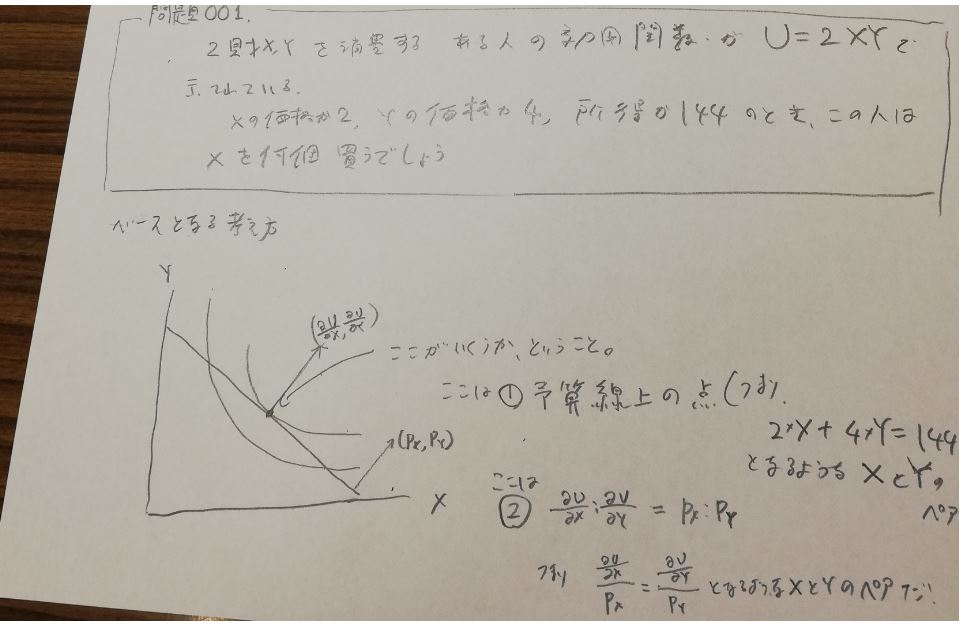 問題001.
2財X,Yを消費する ある人の効用関数が U=2XYで
示されている.
Xの価格が2, Yの価格が4, 所得が144のとき、この人は
Xを何個買うでしょう
ベースとなる考え方
Y
(∂U/∂X, ∂U/∂X)
ここがいくつか、ということ。
ここは ① 予算線上の点(つまり
2*X + 4*Y = 144
となるような XとYの
ペア
(Px, PY)
X
ここは
② ∂U/∂X : ∂U/∂Y = Px : PY
つまり (∂U/∂X)/Px = (∂U/∂Y)/PY となるようなXとYのペア